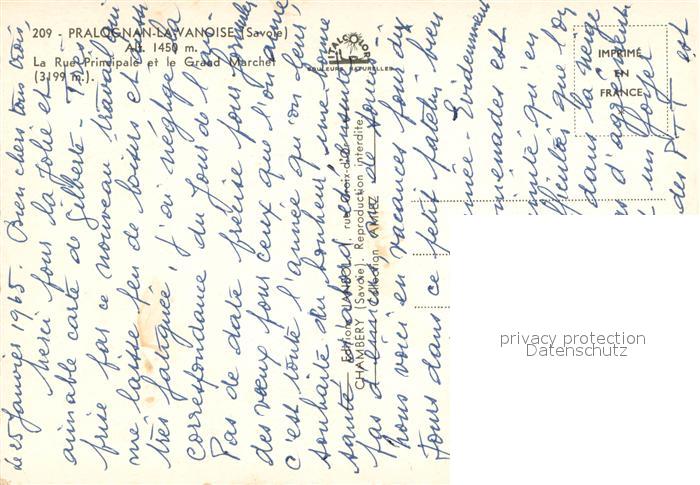 209 - PRALOGNAN-LA-VANOISE (Savoie)
Alt. 1450 m.
La Rue Principale et le Grand Marchet
(3199 m.).
ITALCOLOR
COULEURS NATURELLES
IMPRIMÉ
EN
FRANCE
Editions JANSOL, rue Croix-d'Or
CHAMBERY (Savoie). Reproduction interdite.
Collection AMIEZ
le 25 Janvier 1965. Bien chers tous trois,
Merci pour la jolie et
aimable carte de Gilberte - Très
prise par ce nouveau travail qui
me laisse peu de loisirs et suis
très fatiguée, j'ai négligé la
correspondance du Jour de l'an
Pas de date précise pour formuler
des vœux pour ceux que l'on aime
c'est toute l'année qu'on leur
souhaite du bonheur, une bonne
santé d'abord, et de la réussite
pas de
nous voici en vacances pour dix
jours dans ce petit patelin bien
- Evidemment
promenades est
qu'en
que l'on
dans la neige
d'agglomérés
un forfait
des est
privacy protection
Datenschutz